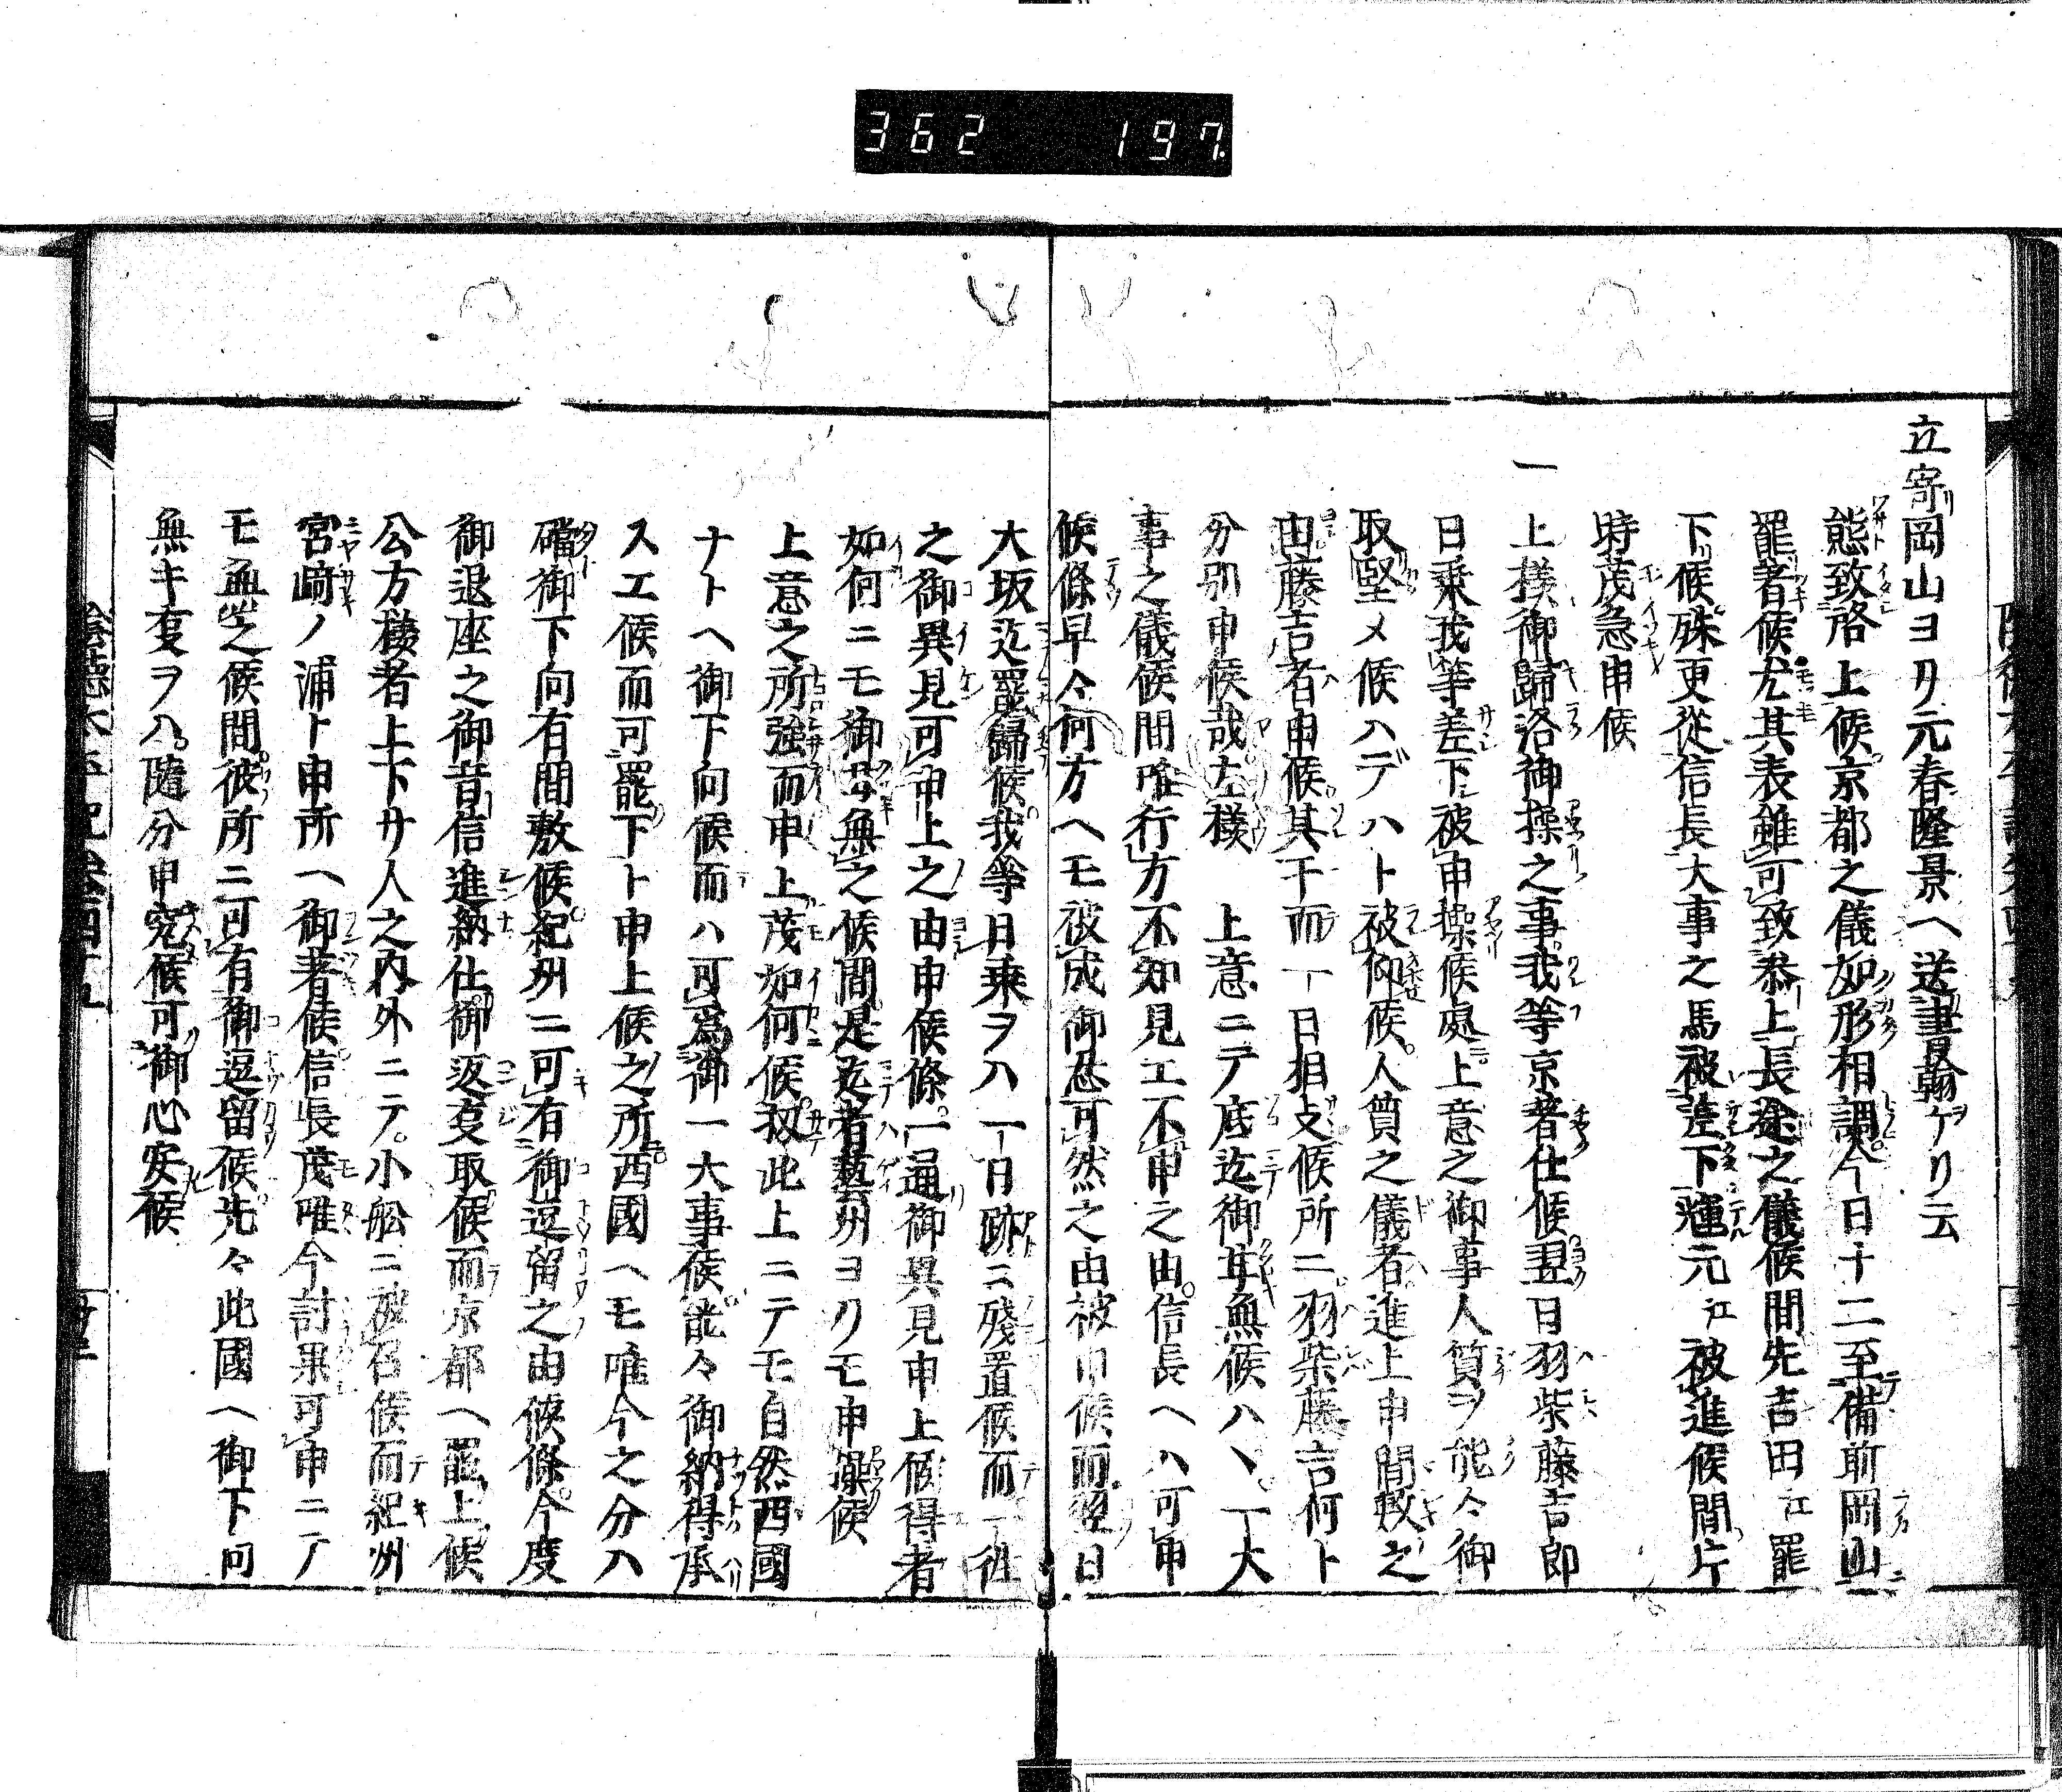 362 197
立寄岡山ヨリ元春隆景ヘ送書翰ケリ云
態致啓上候京都之儀如形相調今日十二至備前岡山
罷着候尤其表雖可致恭上長途之儀候間先吉田江罷
下候殊更從信長大事之馬被差下輝元江被進候間片
時茂急申候
一上様御歸洛御操之事我等京着仕候翌日羽柴藤吉郎
日乗我等差下被申操候處上意之御事人質ヲ能々御
取堅メ候ハデハト被仰候人質之儀者進上申間敷之
由藤吉者申候其干而一日相支候所二羽柴藤吉何ト
分別申候哉左様 上意ニテ底迄御母無候ハヽ一大
事之儀候間唯行方不知見エ不申之由信長ヘハ可申
候條早々何方ヘモ被成御忍可然之由被申候而翌日
大坂迄罷歸候我等日乗ヲハ一日跡ニ殘置候而一往
之御異見可申上之由申候條一通御異見申上候得者
如何ニモ御母無之候間是迄者藝州ヨリモ申操候
上意之所強而申上茂如何候扨此上ニテモ自然西國
ナトヘ御下向候而ハ可爲御一大事候能々御納得承
スエ候而可罷下ト申上候之所西國ヘモ唯今之分ハ
礑御下向有間敷候紀州ニ可有御逗留之由候條今度
御退座之御音信進納仕御返叓取候而京都ヘ罷上候
公方様者上下廿人之内外ニテ小舩ニ被召候而紀州
宮﨑ノ浦ト申所ヘ御著候信長茂唯今討果可申ニテ
モ無之候間彼所ニ可有御逗留候先々此國ヘ御下向
無キ叓ヲハ隨分申究候可御心安候